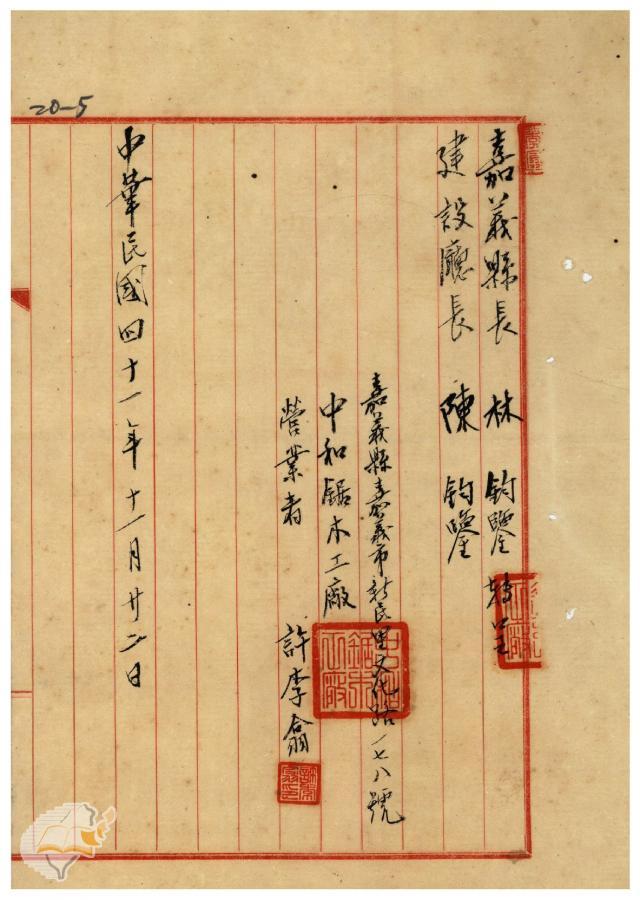 20-5
嘉義縣長 林 鈞鑒 轉呈
建設廳長 陳 鈞鑒
嘉義縣嘉義市新民里文化路一七八號
中和鋸木工廠
營業者 許李翕
中和鋸木工廠
中華民國四十一年十一月廿二日